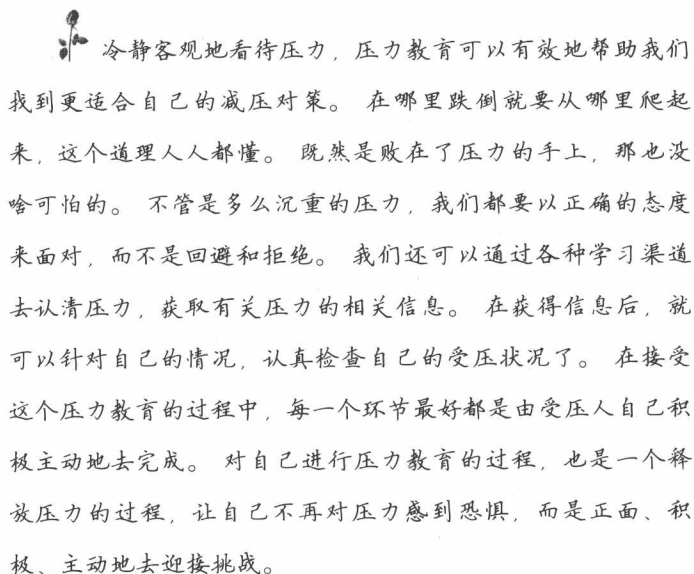 冷静客观地看待压力，压力教育可以有效地帮助我们
找到更适合自己的减压对策。 在哪里跌倒就要从哪里爬起
来，这个道理人人都懂。 既然是败在了压力的手上，那也没
啥可怕的。 不管是多么沉重的压力，我们都要以正确的态度
来面对，而不是回避和拒绝。 我们还可以通过各种学习渠道
去认清压力，获取有关压力的相关信息。 在获得信息后，就
可以针对自己的情况，认真检查自己的受压状况了。 在接受
这个压力教育的过程中，每一个环节最好都是由受压人自己积
极主动地去完成。 对自己进行压力教育的过程，也是一个释
放压力的过程，让自己不再对压力感到恐惧，而是正面、积
极、主动地去迎接挑战。